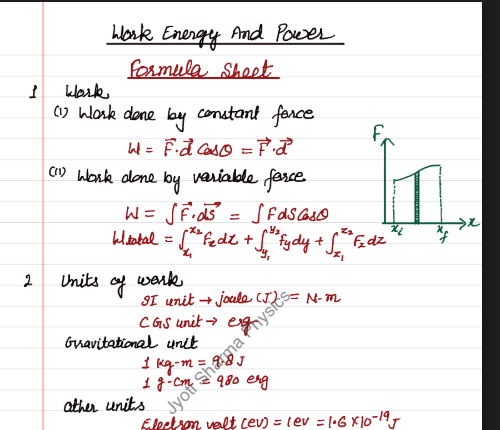 Work Energy And Power
Formula Sheet
1 Work
(i) Work done by constant force
W = F⃗.d⃗ Cosθ = F⃗.d⃗
(ii) Work done by variable force
W = ∫F⃗.ds⃗ = ∫FdSCosθ
Wtotal = ∫ₓ₁ˣ² Fxdx + ∫y₁^y₂ fydy + ∫x₁^x₂ Fzdz
F
xi xf x
2 Units of work
SI unit → joule (J) = N-m
CGS unit → erg
Gravitational unit
1 kg-m = 9.8 J
1 g-cm = 980 erg
Other units
Electron volt (eV) = 1eV = 1.6 X10⁻¹⁹J
Jyoti Sharma Physics